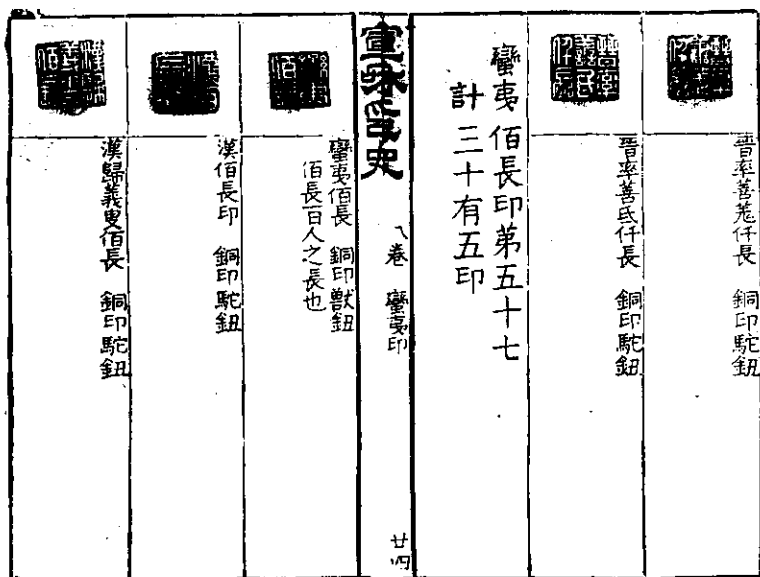 晋率善羌仟長　銅印駝鈕
晋率善氐仟長　銅印駝鈕
蠻夷佰長印第五十七
計三十有五印
宣和印史
八卷　蠻夷印
廿四
蠻夷佰長　銅印獸鈕
佰長百人之長也
漢佰長印　銅印駝鈕
漢歸義叟佰長　銅印駝鈕